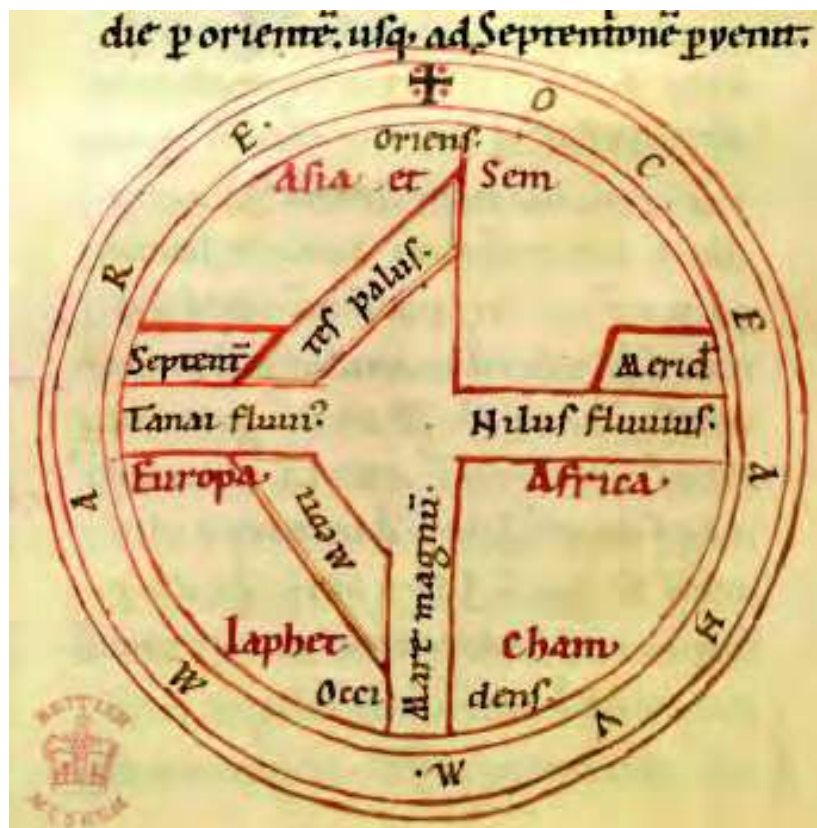 die ꝑ orientē. usq; ad Septentrionē ꝑvenit.
OCEANVM. MARE.
Oriens.
Asia et Sem
tes palus.
Septent̄
Merid
Tanai fluui⁹
Nilus fluuius.
Europa.
Africa.
Meoti
Mare magnū.
Iaphet
Cham
Occi dens.
BRITISH
MUSEUM